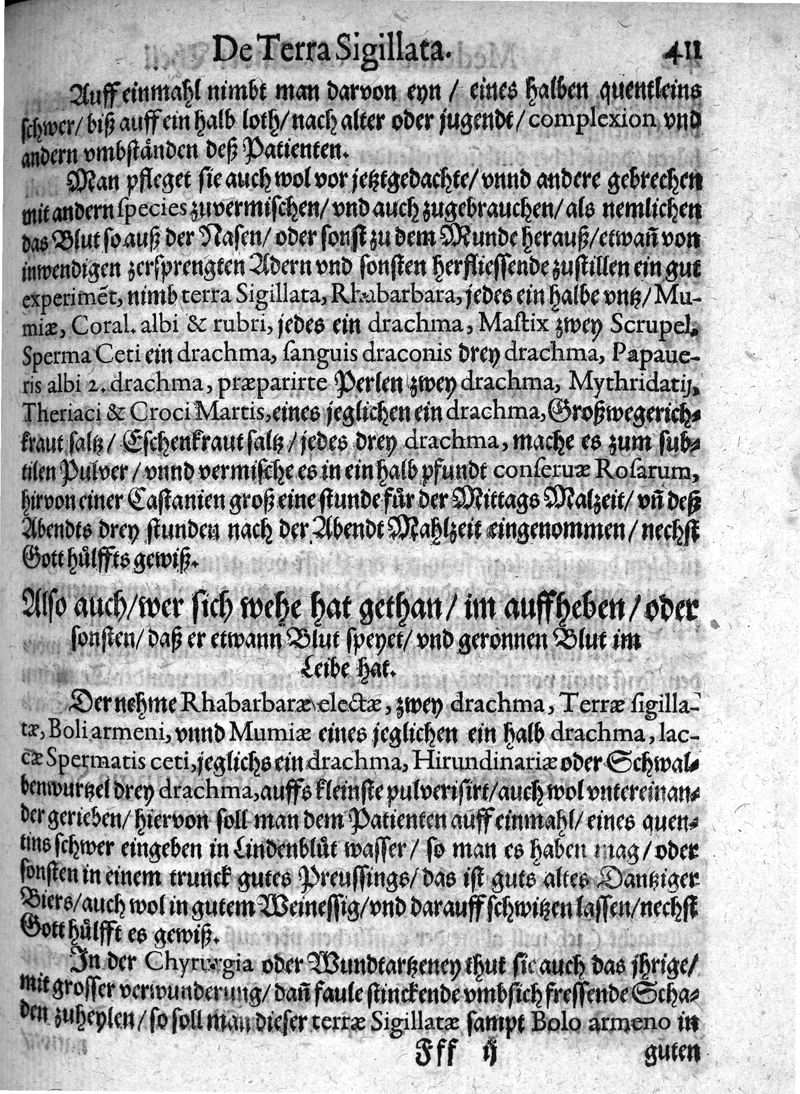 De Terra Sigillata. 411
Auff einmahl nimbt man darvon eyn / eines halben quentleins
schwer / biß auff ein halb loth / nach alter oder jugendt / complexion vnd
andern vmbständen deß Patienten.
Man pfleget sie auch wol vor jetztgedachte / vnnd andere gebrechen
mit andern species zuvermischen / vnd auch zugebrauchen / als nemlichen
das Blut so auß der Nasen / oder sonst zu dem Munde herauß / etwañ von
inwendigen zersprengten Adern vnd sonsten herfliessende zustillen ein gut
experimẽt, nimb terra Sigillata, Rhabarbara, jedes ein halbe vntz / Mu-
miæ, Coral. albi & rubri, jedes ein drachma, Mastix zwey Scrupel,
Sperma Ceti ein drachma, sanguis draconis drey drachma, Papaue-
ris albi 2. drachma, præparirte Perlen zwey drachma, Mythridatij,
Theriaci & Croci Martis, eines jeglichen ein drachma, Großwegerich-
kraut saltz / Eschenkraut saltz / jedes drey drachma, mache es zum sub-
tilen Pulver / vnnd vermische es in ein halb pfundt conseruæ Rosarum,
hirvon einer Castanien groß eine stunde für der Mittags Malzeit / vñ deß
Abendts drey stunden nach der Abendt Mahlzeit eingenommen / nechst
Gott hülffts gewiß.
Also auch / wer sich wehe hat gethan / im auffheben / oder
sonsten / daß er etwann Blut speyet / vnd geronnen Blut im
Leibe hat.
Der nehme Rhabarbaræ electæ, zwey drachma, Terræ sigilla-
tæ, Boli armeni, vnnd Mumiæ eines jeglichen ein halb drachma, lac-
cæ Spermatis ceti, jeglichs ein drachma, Hirundinariæ oder Schwal-
benwurtzel drey drachma, auffs kleinste pulverisirt / auch wol vntereinan-
der gerieben / hiervon soll man dem Patienten auff einmahl / eines quen-
tins schwer eingeben in Lindenblüt wasser / so man es haben mag / oder
sonsten in einem trunck gutes Preussings / das ist guts altes Dantziger
Biers / auch wol in gutem Weinessig / vnd darauff schwitzen lassen / nechst
Gott hülfft es gewiß.
In der Chyrurgia oder Wundtartzeney thut sie auch das jhrige /
mit grosser verwunderung / dañ faule stinckende vmbsich fressende Scha-
den zuheylen / so soll man dieser terræ Sigillatæ sampt Bolo armeno in
Fff ij guten